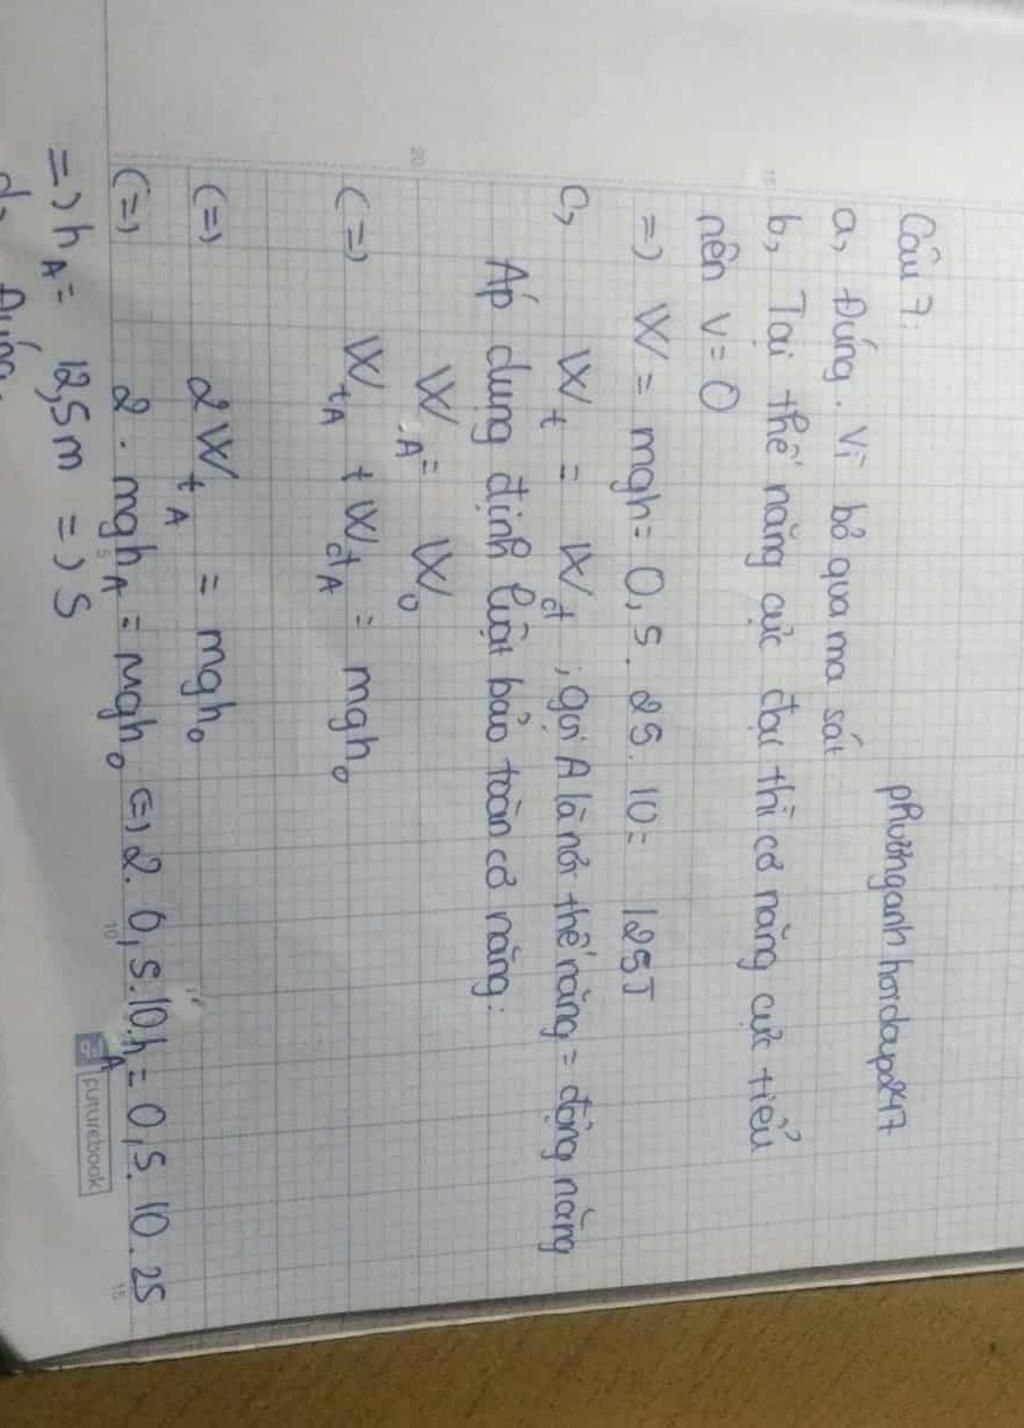 Câu 7.
phuonganh hoidap247
a, Đúng. Vì bỏ qua ma sát
b, Tại thế năng cực đại thì cơ năng cực tiểu
nên v = 0
=) W = mgh = 0,5. 25. 10 = 125J
c, Wt = Wđ ; gọi A là nơi thế năng = động năng
Áp dụng định luật bảo toàn cơ năng:
WA = W0
(=) WtA + WđA = mgh0
(=) 2WtA = mgh0
(=) 2. mghA = mgh0 (=) 2. 0,5.10.hA = 0,5. 10. 25
=) hA = 12,5m =) S
d, Đúng.
20
15
5
10
15
Futurebook